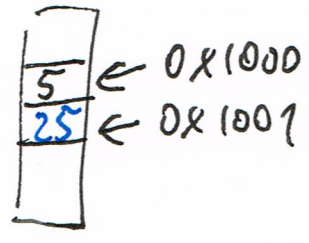 5 ← 0x1000
25 ← 0x1001